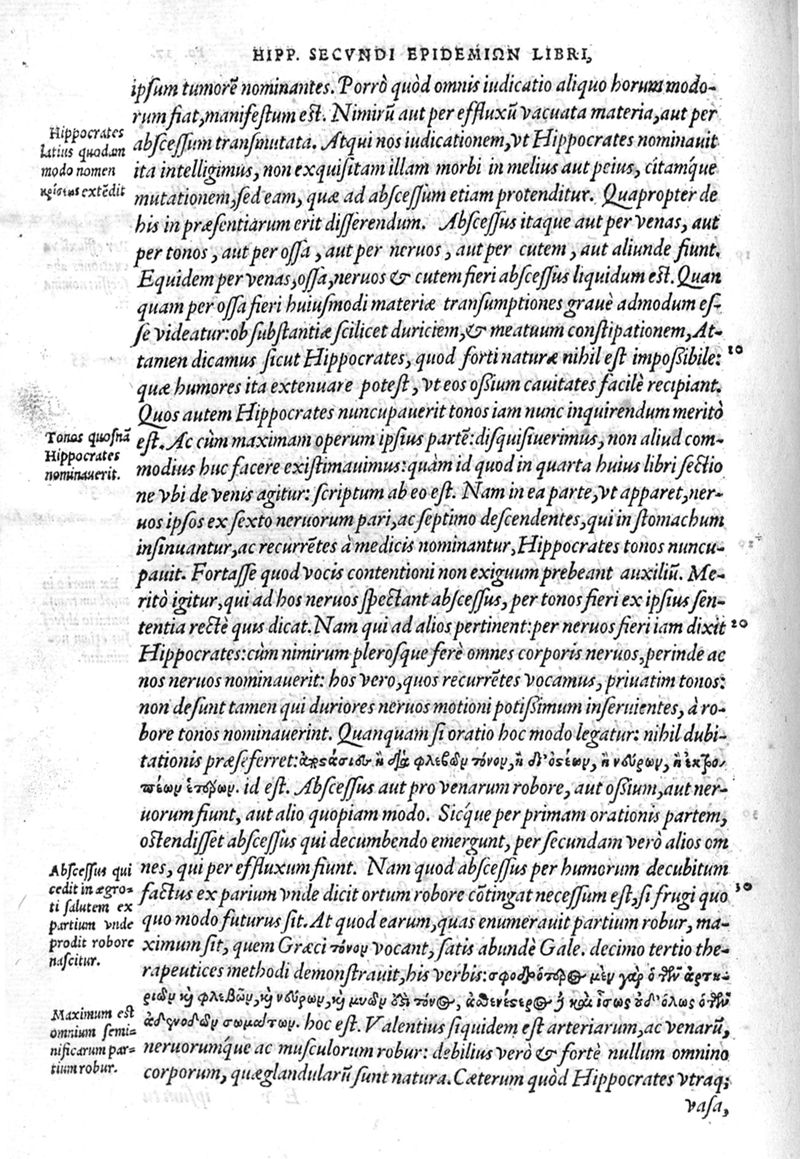 HIPP. SECVNDI EPIDEMIΩN LIBRI,
ipsum tumorẽ nominantes. Porrò quòd omnis iudicatio aliquo horum modo-
rum fiat, manifestum est. Nimirũ aut per effluxũ vacuata materia, aut per
abscessum transmutata. Atqui nos iudicationem, vt Hippocrates nominauit
ita intelligimus, non exquisitam illam morbi in melius aut peius, citamq́ue
mutationem, sed eam, quæ ad abscessum etiam protenditur. Quapropter de
his in præsentiarum erit disserendum. Abscessus itaque aut per venas, aut
per tonos, aut per ossa, aut per neruos, aut per cutem, aut aliunde fiunt.
Equidem per venas, ossa, neruos & cutem fieri abscessus liquidum est. Quan
quam per ossa fieri huiusmodi materiæ transumptiones grauè admodum es-
se videatur: ob substantiæ scilicet duriciem, & meatuum constipationem, At-
tamen dicamus sicut Hippocrates, quod forti naturæ nihil est impossibile:
quæ humores ita extenuare potest, vt eos ossium cauitates facilè recipiant.
Quos autem Hippocrates nuncupauerit tonos iam nunc inquirendum meritò
est. Ac cùm maximam operum ipsius partẽ: disquisiuerimus, non aliud com-
modius huc facere existimauimus: quàm id quod in quarta huius libri sectio
ne vbi de venis agitur: scriptum ab eo est. Nam in ea parte, vt apparet, ner-
uos ipsos ex sexto neruorum pari, ac septimo descendentes, qui in stomachum
insinuantur, ac recurrẽtes à medicis nominantur, Hippocrates tonos nuncu-
pauit. Fortasse quod vocis contentioni non exiguum prebeant auxiliũ. Me-
ritò igitur, qui ad hos neruos spectant abscessus, per tonos fieri ex ipsius sen-
tentia rectè quis dicat. Nam qui ad alios pertinent: per neruos fieri iam dixit
Hippocrates: cùm nimirum plerosque ferè omnes corporis neruos, perinde ac
nos neruos nominauerit: hos vero, quos recurrẽtes vocamus, priuatim tonos:
non desunt tamen qui duriores neruos motioni potissimum inseruientes, à ro-
bore tonos nominauerint. Quanquam si oratio hoc modo legatur: nihil dubi-
tationis præseferret: ἀποστάσιες ἢ διὰ φλεβῶν τόνον, ἢ δι' ὀστέων, ἢ νεύρων, ἢ ἐκτρο
πέων ἑτέρων. id est. Abscessus aut pro venarum robore, aut ossium, aut ner-
uorum fiunt, aut alio quopiam modo. Sicq́ue per primam orationis partem,
ostendisset abscessus qui decumbendo emergunt, per secundam verò alios om
nes, qui per effluxum fiunt. Nam quod abscessus per humorum decubitum
factus ex parium vnde dicit ortum robore cõtingat necessum est, si frugi quo
quo modo futurus sit. At quod earum, quas enumerauit partium robur, ma-
ximum sit, quem Græci τόνον vocant, satis abundè Gale. decimo tertio the-
rapeutices methodi demonstrauit, his verbis: σφοδρότερος μὲν γὰρ ὁ τῶν ἀρτη-
ριῶν καὶ φλεβῶν, καὶ νεύρων, καὶ μυῶν ἐστὶ τόνος, ἀσθενέστερος δὲ καὶ ἴσως οὐδ' ὅλως ὁ τῶν
ἀδενοδῶν σωμάτων. hoc est. Valentius siquidem est arteriarum, ac venarũ,
neruorumq́ue ac musculorum robur: debilius verò & fortè nullum omnino
corporum, quæ glandularũ sunt natura. Cæterum quòd Hippocrates vtraq;
vasa,
Hippocrates
latius quodam
modo nomen
κρίσιως extẽdit
Tonos quosnã
Hippocrates
nominauerit.
Abscessus qui
cedit in ægro-
ti salutem ex
partium vnde
prodit robore
nascitur.
Maximum est
omnium semi-
nificarum par-
tium robur.
10
20
30